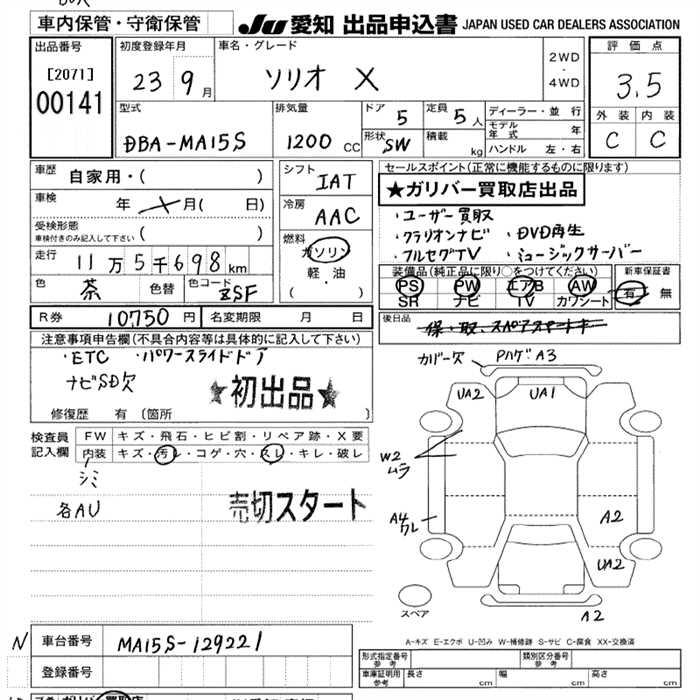 車内保管・守衛保管
JU 愛知 出品申込書 JAPAN USED CAR DEALERS ASSOCIATION
出品番号
[2071]
00141
初度登録年月
23 9月
車名・グレード
ソリオ X
2WD
・
4WD
評価点
3.5
外装 内装
C C
型式
DBA-MA15S
排気量
1200 cc
ドア 5
形状 SW
定員 5人
積載 kg
ディーラー・並行
モデル年式 年
ハンドル 左・右
車歴 自家用・( )
車検 年 月(日)
受検形態
車検付きのみ記入して下さい ( )
走行 11万5千698km
色 茶 色替 色コード ZSF
シフト IAT
冷房 AAC
燃料
ガソリン
軽・油
( )
セールスポイント(正常に機能するものに限ります)
★ガリバー買取店出品
・ユーザー買取
・クラリオンナビ ・DVD再生
・フルセグTV ・ミュージックサーバー
装備品(純正品に限り○をつけてください)
PS PW エアB AW
SR ナビ TV カワシート
新車保証書
有 無
R券 10750円 名変期限 月 日
後日品
保・取、スペアスマートキー
注意事項申告欄(不具合内容等は具体的に記入して下さい)
・ETC ・パワースライドドア
ナビSD欠
★初出品★
修復歴 有(箇所 )
検査員記入欄
FW キズ・飛石・ヒビ割・リペア跡・X要
内装 キズ・汚レ・コゲ・穴・スレ・キレ・破レ
シミ
各AU
売切スタート
カバー欠 Pハゲ A3
UA2 UA1
W2
ムラ
A4
ワレ
A2
UA2
A2
スペア
A-キズ E-エクボ U-凹み W-補修跡 S-サビ C-腐食 XX-交換済
N 車台番号 MA15S-129221
登録番号
形式指定番号
参考
類別区分番号
参考
車庫証明用
参考
長さ cm 幅 cm 高さ cm
買取店